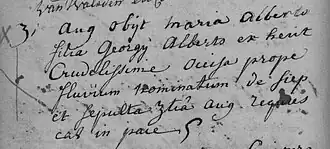 3i Aug obijt maria Alberto
filia Georgij Alberto ex herit
Crudelissime occisa prope
fluvium nominatum de siep
et sepulta 3tia aug requies
cat in pace